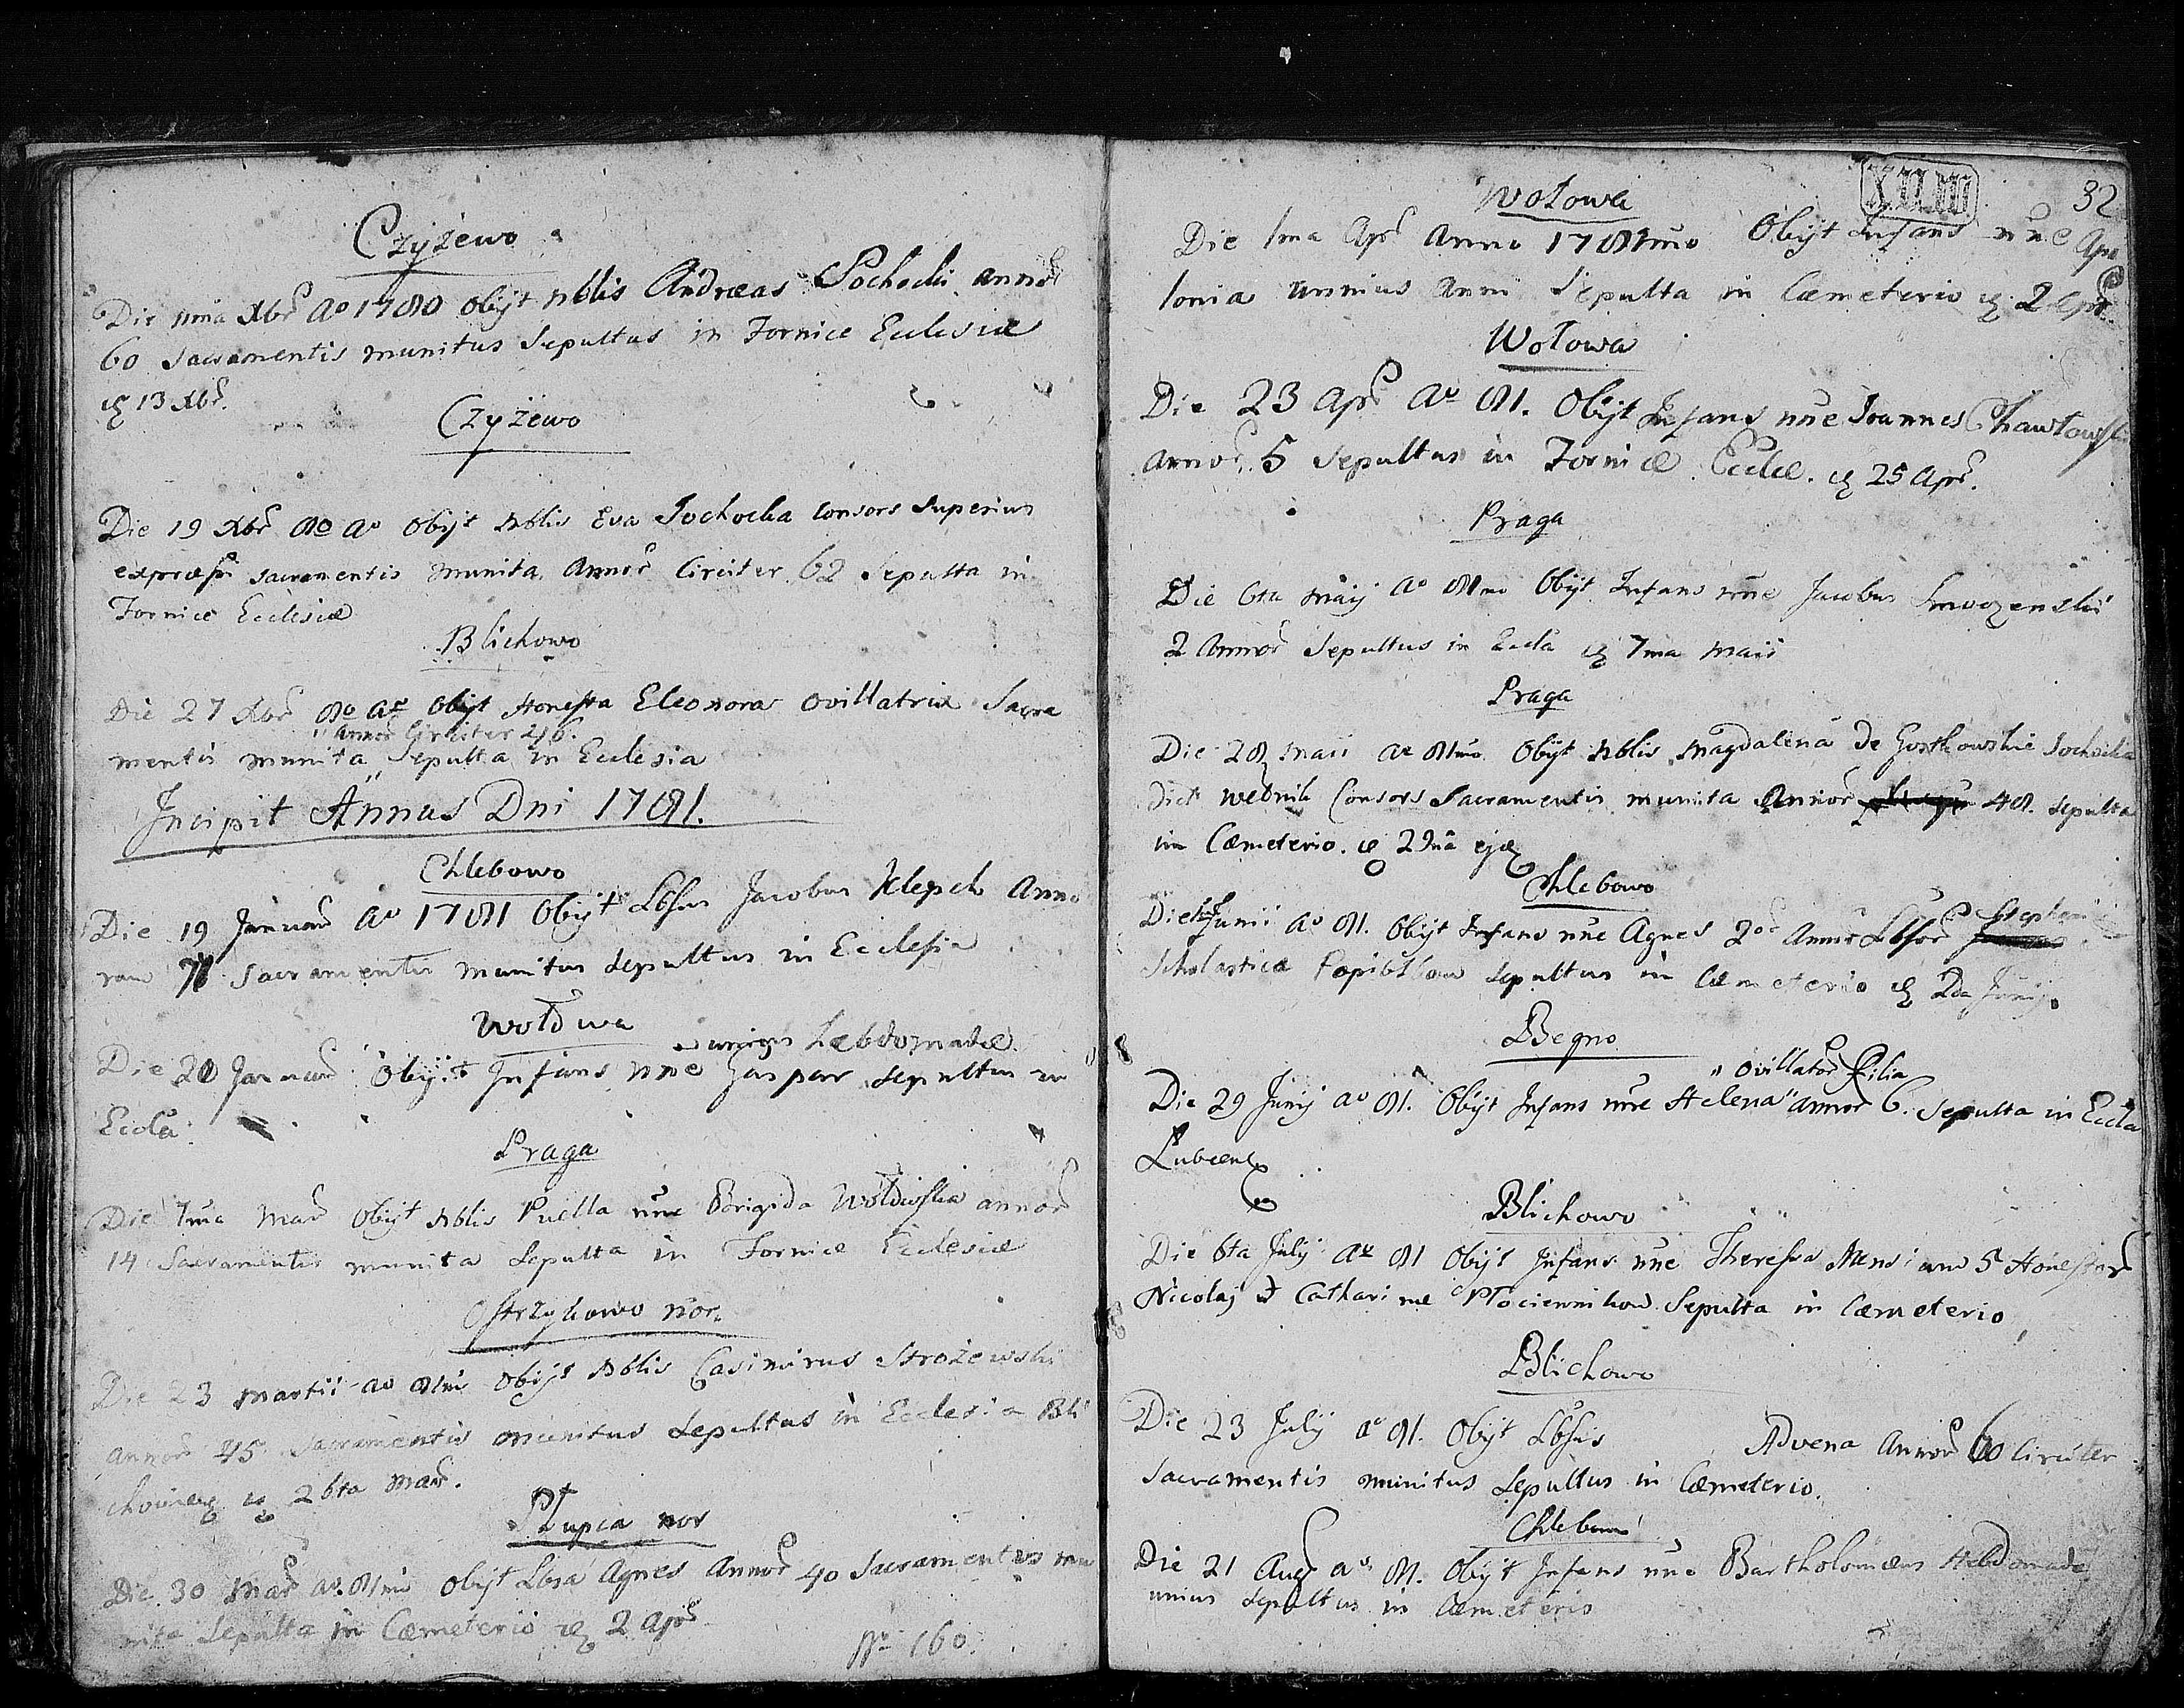 Czyżewo
Die 11ma Xbr Ao 1780 Obijt Nblis Andræas Sochocki annor
60 Sacramentis munitus Sepultus in Fornice Ecclesiæ
13 Xbr.
Czyżewo
Die 19 Xbr 80 Ao Obijt Nblis Eva Sochocka consors Superius
sacramentis munita Annor Circiter 62 Sepulta in
Fornice Ecclesiæ
Blichowo
Die 27 Xbr 80 Ao Obijt Honesta Eleonora Ovillatrix Sacra
Annor Circiter 46.
mentis munita Sepulta in Ecclesia
Incipit Annus Dni 1781.
Chlebowo
Die 19 Januar Ao 1781 Obijt Lbsus Jacobus Klepch Anno
rum Sacramentis munitus Sepultus in Ecclesia
Wołowa
unius hebdomadæ
Die 20 Januar Obijit Infans nne Gaspar Sepultus in
Eccla
Praga
Die 7ma Mar Obijt Nblis Puella nne Brigida annor
14 Sacramentis munita Sepulta in Fornice Ecclesiæ
Ostrzykowo nor.
Die 23 Martii ao 81mo Obijt Nblis Casimirus Strożewski
annor 45 Sacramentis munitus Sepultus in Ecclesia Bli
26ta Mar.
Słupca nor
Die 30 Mar ao 81mo Obijt Lbsa Agnes Annor 40 Sacramentis mu
nita Sepulta in Cæmeterio 2 Apr
No 160.
32
Wołowa
Die 1ma Apr Anno 1781mo Obijt Infans nne Apo
lonia unnius Anni Sepulta in Cæmeterio 2 Apr.
Wołowa
Die 23 Apr Ao 81. Obijt Infans nne Joannes
annor. 5 Sepultus in Fornice Ecclæ. 25 Apr.
Praga
Die 6ta Maij Ao 81mo Obijt Infans nne Jacobus
2 Annor Sepultus in Eccla 7ma Maii
Praga
Die 28 Maii Ao 81mo Obijt Nblis Magdalena de Gostkowskie Sochocka
dict Wednik Consors Sacramentis munita Annor 48. Sepulta
in Cæmeterio. 29na
Chlebowo
Die Junii Ao 81. Obijt Infans nne Agnes 2or Annor Lbsor Stephani
Scholastica Sepultus in Cæmeterio 2da Junij.
Begno
Ovillator Filia
Die 29 Junij Ao 81. Obijt Infans nne Helena annor 6. Sepulta in Eccla
Blichowo
Die 6ta Julij Ao 81 Obijt Infans nne Theressa Mensium 5 Honestor
Nicolaj & Catharinæ Sepulta in Cæmeterio
Blichowo
Die 23 Julij ao 81. Obijt Lbsus Advena Annor 60 Circiter
Sacramentis munitus Sepultus in Cæmeterio.
Chlebowo
Die 21 Aug ao 81. Obijt Infans nne Bartholomæus Hebdomadæ
unius Sepultus in Cæmeterio